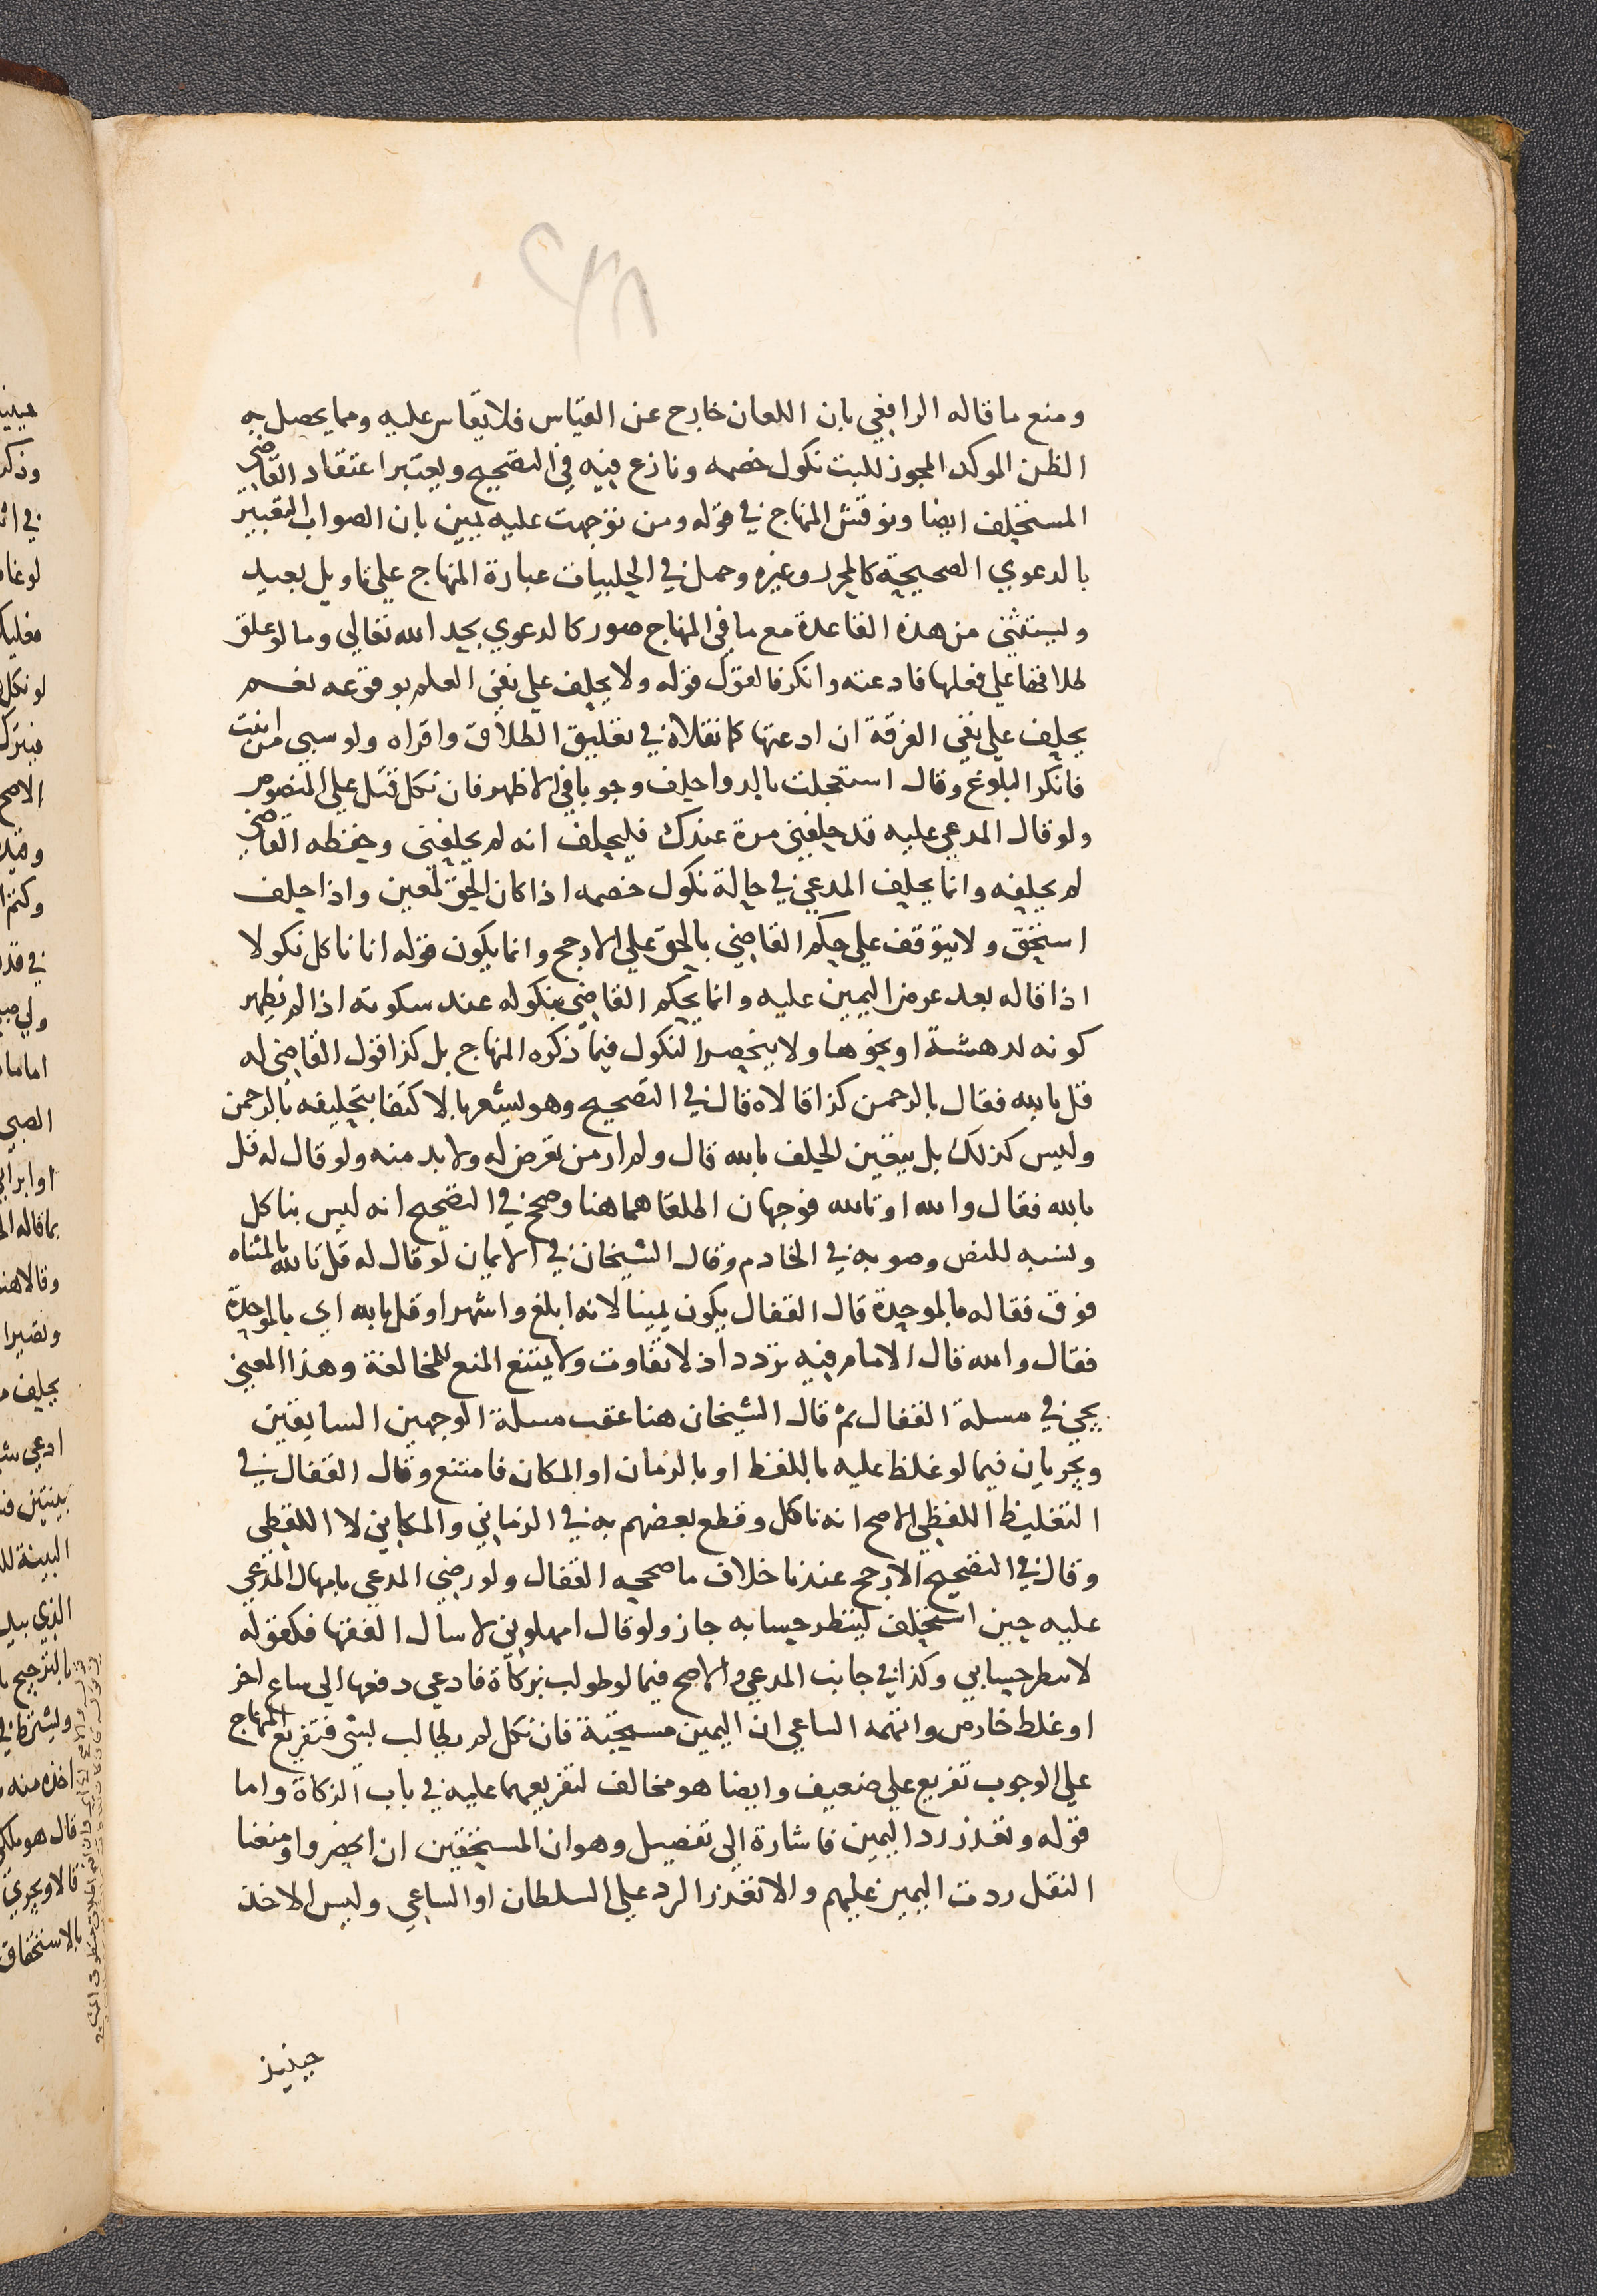 ومنع ما قاله الرافعي بان اللعان خارج عن القياس فلا يقاس عليه ومما يحصل به
الظن الموكد المجوز للبت نكول خصمه ونازع فيه في التصحيح ويعتبر اعتقاد القاضي
المستحلف ايضا ونوقش المنهاج في قوله ومن توجهت عليه يمين بان الصواب التعبير
بالدعوي الصحيحة كالمحرر وغيره وحمل في الحلبيات عبارة المنهاج علي تاويل بعيد
ويستثني من هذه القاعدة مع ما في المنهاج صور كالدعوي بحد الله تعالي وما لو علق
طلاقها علي فعلها فادعته وانكر فالقول قوله ولا يحلف علي نفي العلم بوقوعه نعم
يحلف علي نفي الفرقة ان ادعتها كما نقلاه في تعليق الطلاق واقراه ولو سبي من انبت
فانكر البلوغ وقال استعجلت بالدوا حلف وجوبا في الاظهر فان نكل قتل علي المنصوص
ولو قال المدعي عليه قد حلفني مرة عندك فليحلف انه لم يحلفني وحفظه القاضي
لم يحلفه وانما يحلف المدعي في حالة نكول خصمه اذا كان الحق لمعين واذا حلف
استحق ولا يتوقف علي حكم القاضي بالحق علي الارجح وانما يكون قوله انا ناكل نكولا
اذا قاله بعد عرض اليمين عليه وانما يحكم القاضي بنكوله عند سكوته اذا لم يظهر
كونه لدهشة او نحوها ولا ينحصر النكول فيما ذكره المنهاج بل كذا قول القاضي له
قل بالله فقال بالرحمن كذا قالاه قال في التصحيح وهو يشعر بالاكتفا بتحليفه بالرحمن
وليس كذلك بل يتعين الحلف بالله قال ولم ار من تعرض له ولا بد منه ولو قال له قل
بالله فقال والله او تالله فوجهان اطلقاهما هنا وصحح في التصحيح انه ليس بناكل
ونسبه للنص وصوبه في الخادم وقال الشيخان في الايمان لو قال له قل تالله بالمثناه
فوق فقاله بالموحدة قال القفال يكون يمينا لانه ابلغ واشهر او قل بالله اي بالموحدة
فقال والله قال الامام فيه تردد اذ لا تفاوت ولا يمتنع المنع للمخالفة وهذا المعني
يجي في مسلة القفال ثم قال الشيخان هنا عقب مسلة الوجهين السابقين
ويجريان فيما لو غلظ عليه باللفظ او بالزمان او المكان فامتنع وقال القفال في
التغليظ اللفظي الاصح انه ناكل وقطع بعضهم به في الزماني والمكاني لا اللفظي
وقال في التصحيح الارجح عندنا خلاف ما صححه القفال ولو رضي المدعي بامهال المدعي
عليه حين استحلف لينظر حسابه جاز ولو قال امهلوني لاسال الفقها فكقوله
لانظر حسابي وكذا في جانب المدعي والاصح فيما لو طولب بزكاة فادعي دفعها الي ساع اخر
او غلط خارص واتهمه الساعي ان اليمين مستحبة فان نكل لم يطالب بشي فتفريع المنهاج
علي الوجوب تفريع علي ضعيف وايضا هو مخالف لتفريعهما عليه في باب الزكاة واما
قوله وتعذر رد اليمين فاشارة الي تفصيل وهو ان المستحقين ان انحصروا ومنعنا
النقل ردت اليمين عليهم والا تعذر الرد علي السلطان او الساعي وليس الاخذ
حينيذ